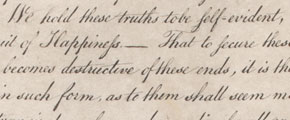 We hold these truths to be self-evident,
uit of Happiness.— That to secure these
becomes destructive of these ends, it is the
in such form, as to them shall seem m